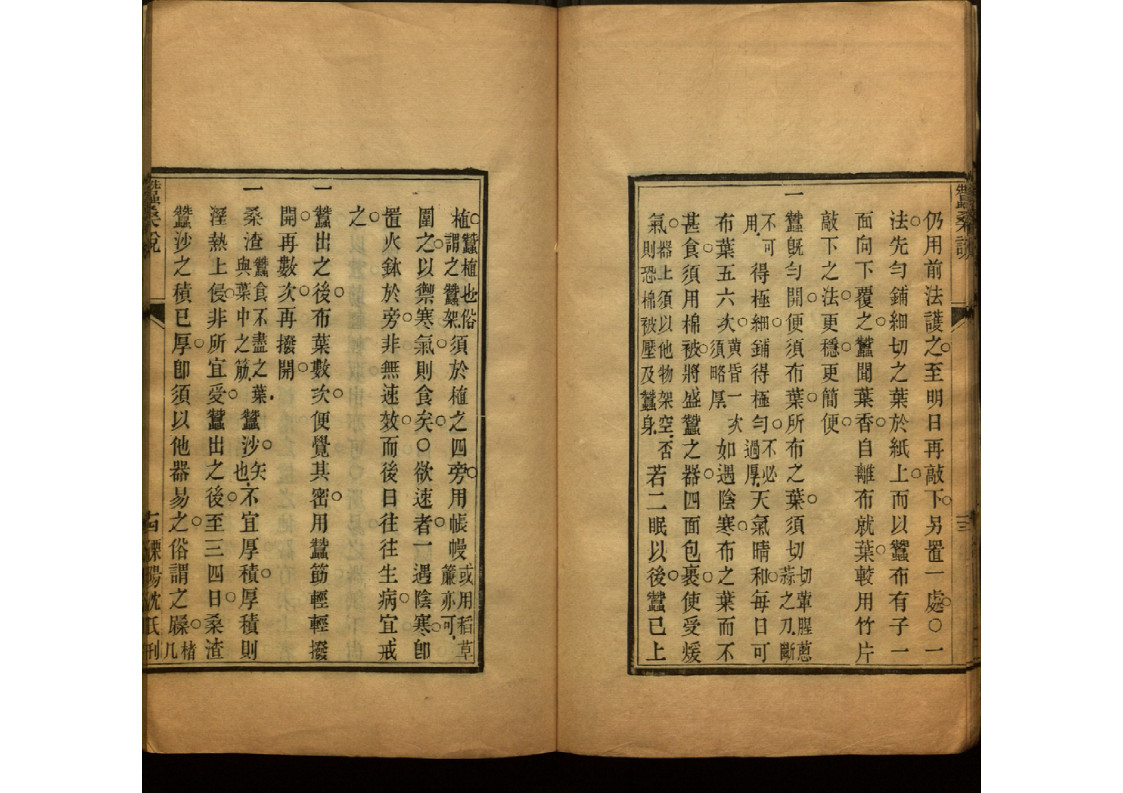 蠶桑說
仍用前法護之至明日再敲下另置一處○一
法先勻鋪細切之葉於紙上而以蠶布有子一
面向下覆之蠶聞葉香自離布就葉較用竹片
敲下之法更穩更簡便
一蠶旣勻開便須布葉所布之葉須切切葷腥蔥蒜之刀斷
不可用得極細鋪得極勻不必過厚天氣晴和每日可
布葉五六次黃昏一次須略厚如遇陰寒布之葉而不
甚食須用棉被將盛蠶之器四面包裹使受煖
氣器上須以他物架空否則恐棉被壓及蠶身若二眠以後蠶已上
植蠶植也俗謂之蠶架須於植之四旁用帳幔或用稻草簾亦可
圍之以禦寒氣則食矣○欲速者一遇陰寒卽
置火鉢於旁非無速效而後日往往生病宜戒
之
一蠶出之後布葉數次便覺其密用蠶筯輕輕撥
開再數次再撥開
一桑渣蠶食不盡之葉與葉中之筋蠶沙矢也不宜厚積厚積則
溼熱上侵非所宜受蠶出之後至三四日桑渣
蠶沙之積已厚卽須以他器易之俗謂之
蠶桑說
溧陽沈氏刊